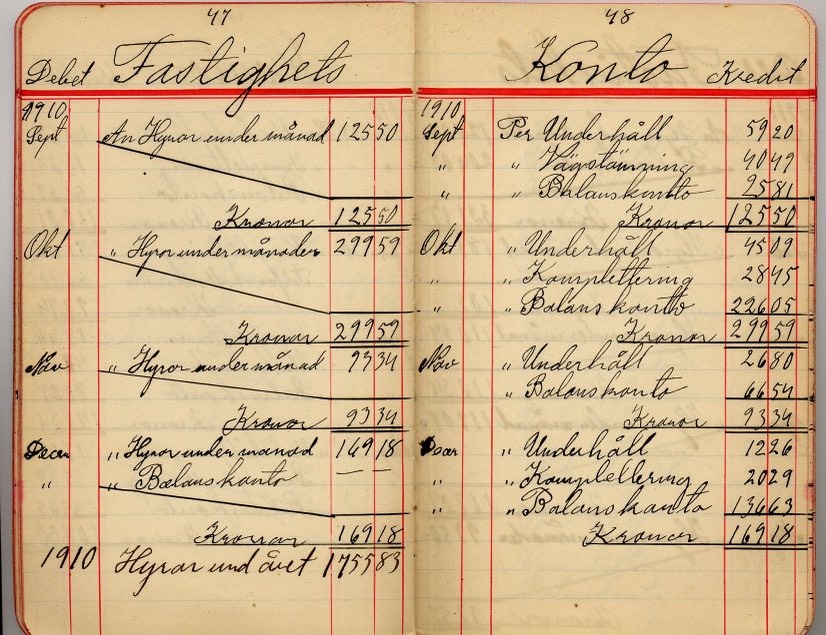 47
Debet Fastighets
1910
Sept An Hyror under månad 125 50
Kronor 125 50
Okt " Hyror under månader 299 59
Kronor 299 59
Nov " Hyror under månad 93 34
Kronor 93 34
Decem " Hyror under månad 169 18
" " Balanskonto — —
Kronor 169 18
1910 Hyror und året 1755 83
48
Konto Kredit
1910
Sept Per Underhåll 59 20
" " Vägstämning 40 49
" " Balanskonto 25 81
Kronor 125 50
Okt " Underhåll 45 09
" " Komplettering 28 45
" " Balanskonto 226 05
Kronor 299 59
Nov " Underhåll 26 80
" " Balanskonto 66 54
Kronor 93 34
Decem " Underhåll 12 26
" " Komplettering 20 29
" " Balanskonto 136 63
Kronor 169 18